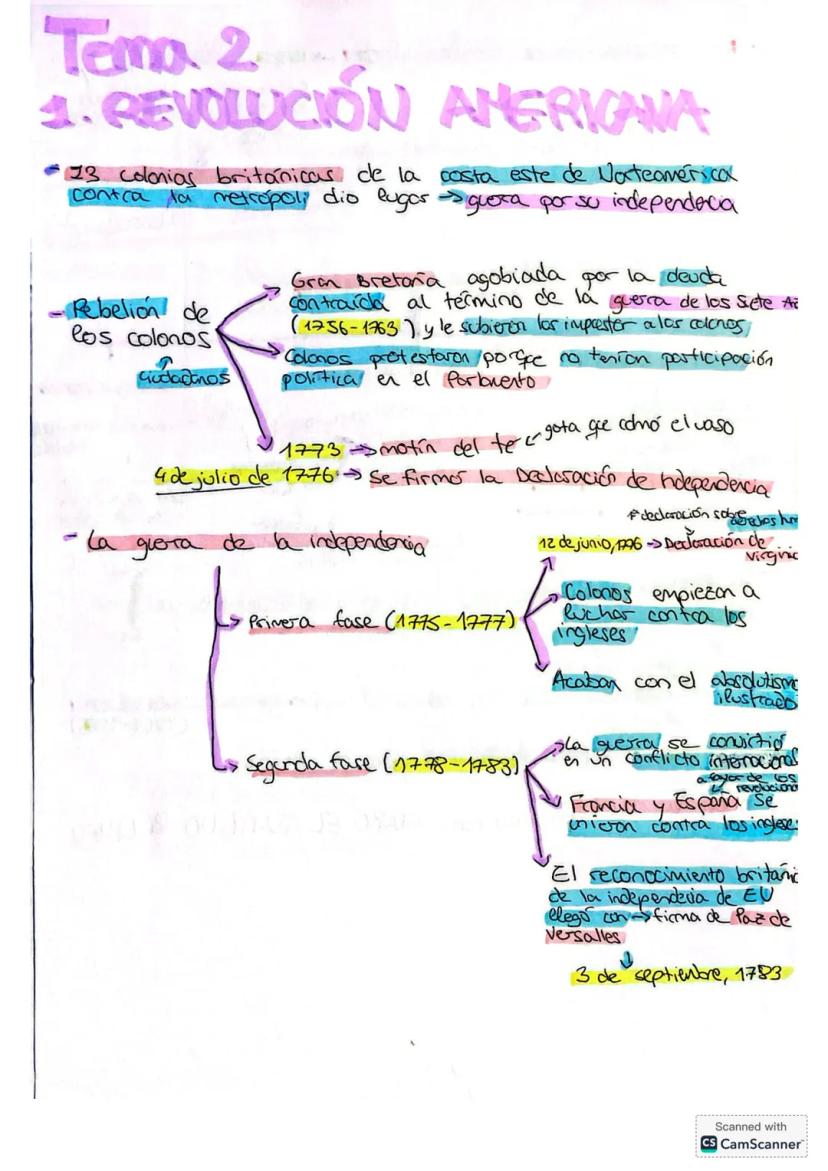 Tema 2
1. REVOLUCIÓN AMERICANA
- 13 colonias británicas de la costa este de Norteamérica
contra la metrópoli dio lugar → guerra por su independencia
- Rebelión de
los colonos
ciudadanos
Gran Bretaña agobiada por la deuda
contraída al término de la guerra de los Siete A
(1756-1763) y le subieron los impuestos a los colonos
Colonos protestaron porqe no tenían participación
política en el Parlamento
1773 → motín del te gota qe colmó el vaso
4 de julio de 1776 → Se firmó la Declaración de Independencia
- La guerra de la independencia
Primera fase (1775-1777)
1ª declaración sobre
derechos hum
12 de junio, 1776 → Declaración de
Virginia
Colonos empiezan a
luchar contra los
ingleses
Acaban con el absolutism
ilustrado
Segunda fase (1778-1783)
La guerra se convirtió
en un conflicto internacional
a favor de los
revoluciona
Francia y España se
unieron contra los inglese
El reconocimiento británi
de la independencia de EU
llegó con → firma de Paz de
Versalles
3 de septiembre, 1783
Scanned with
CS CamScanner